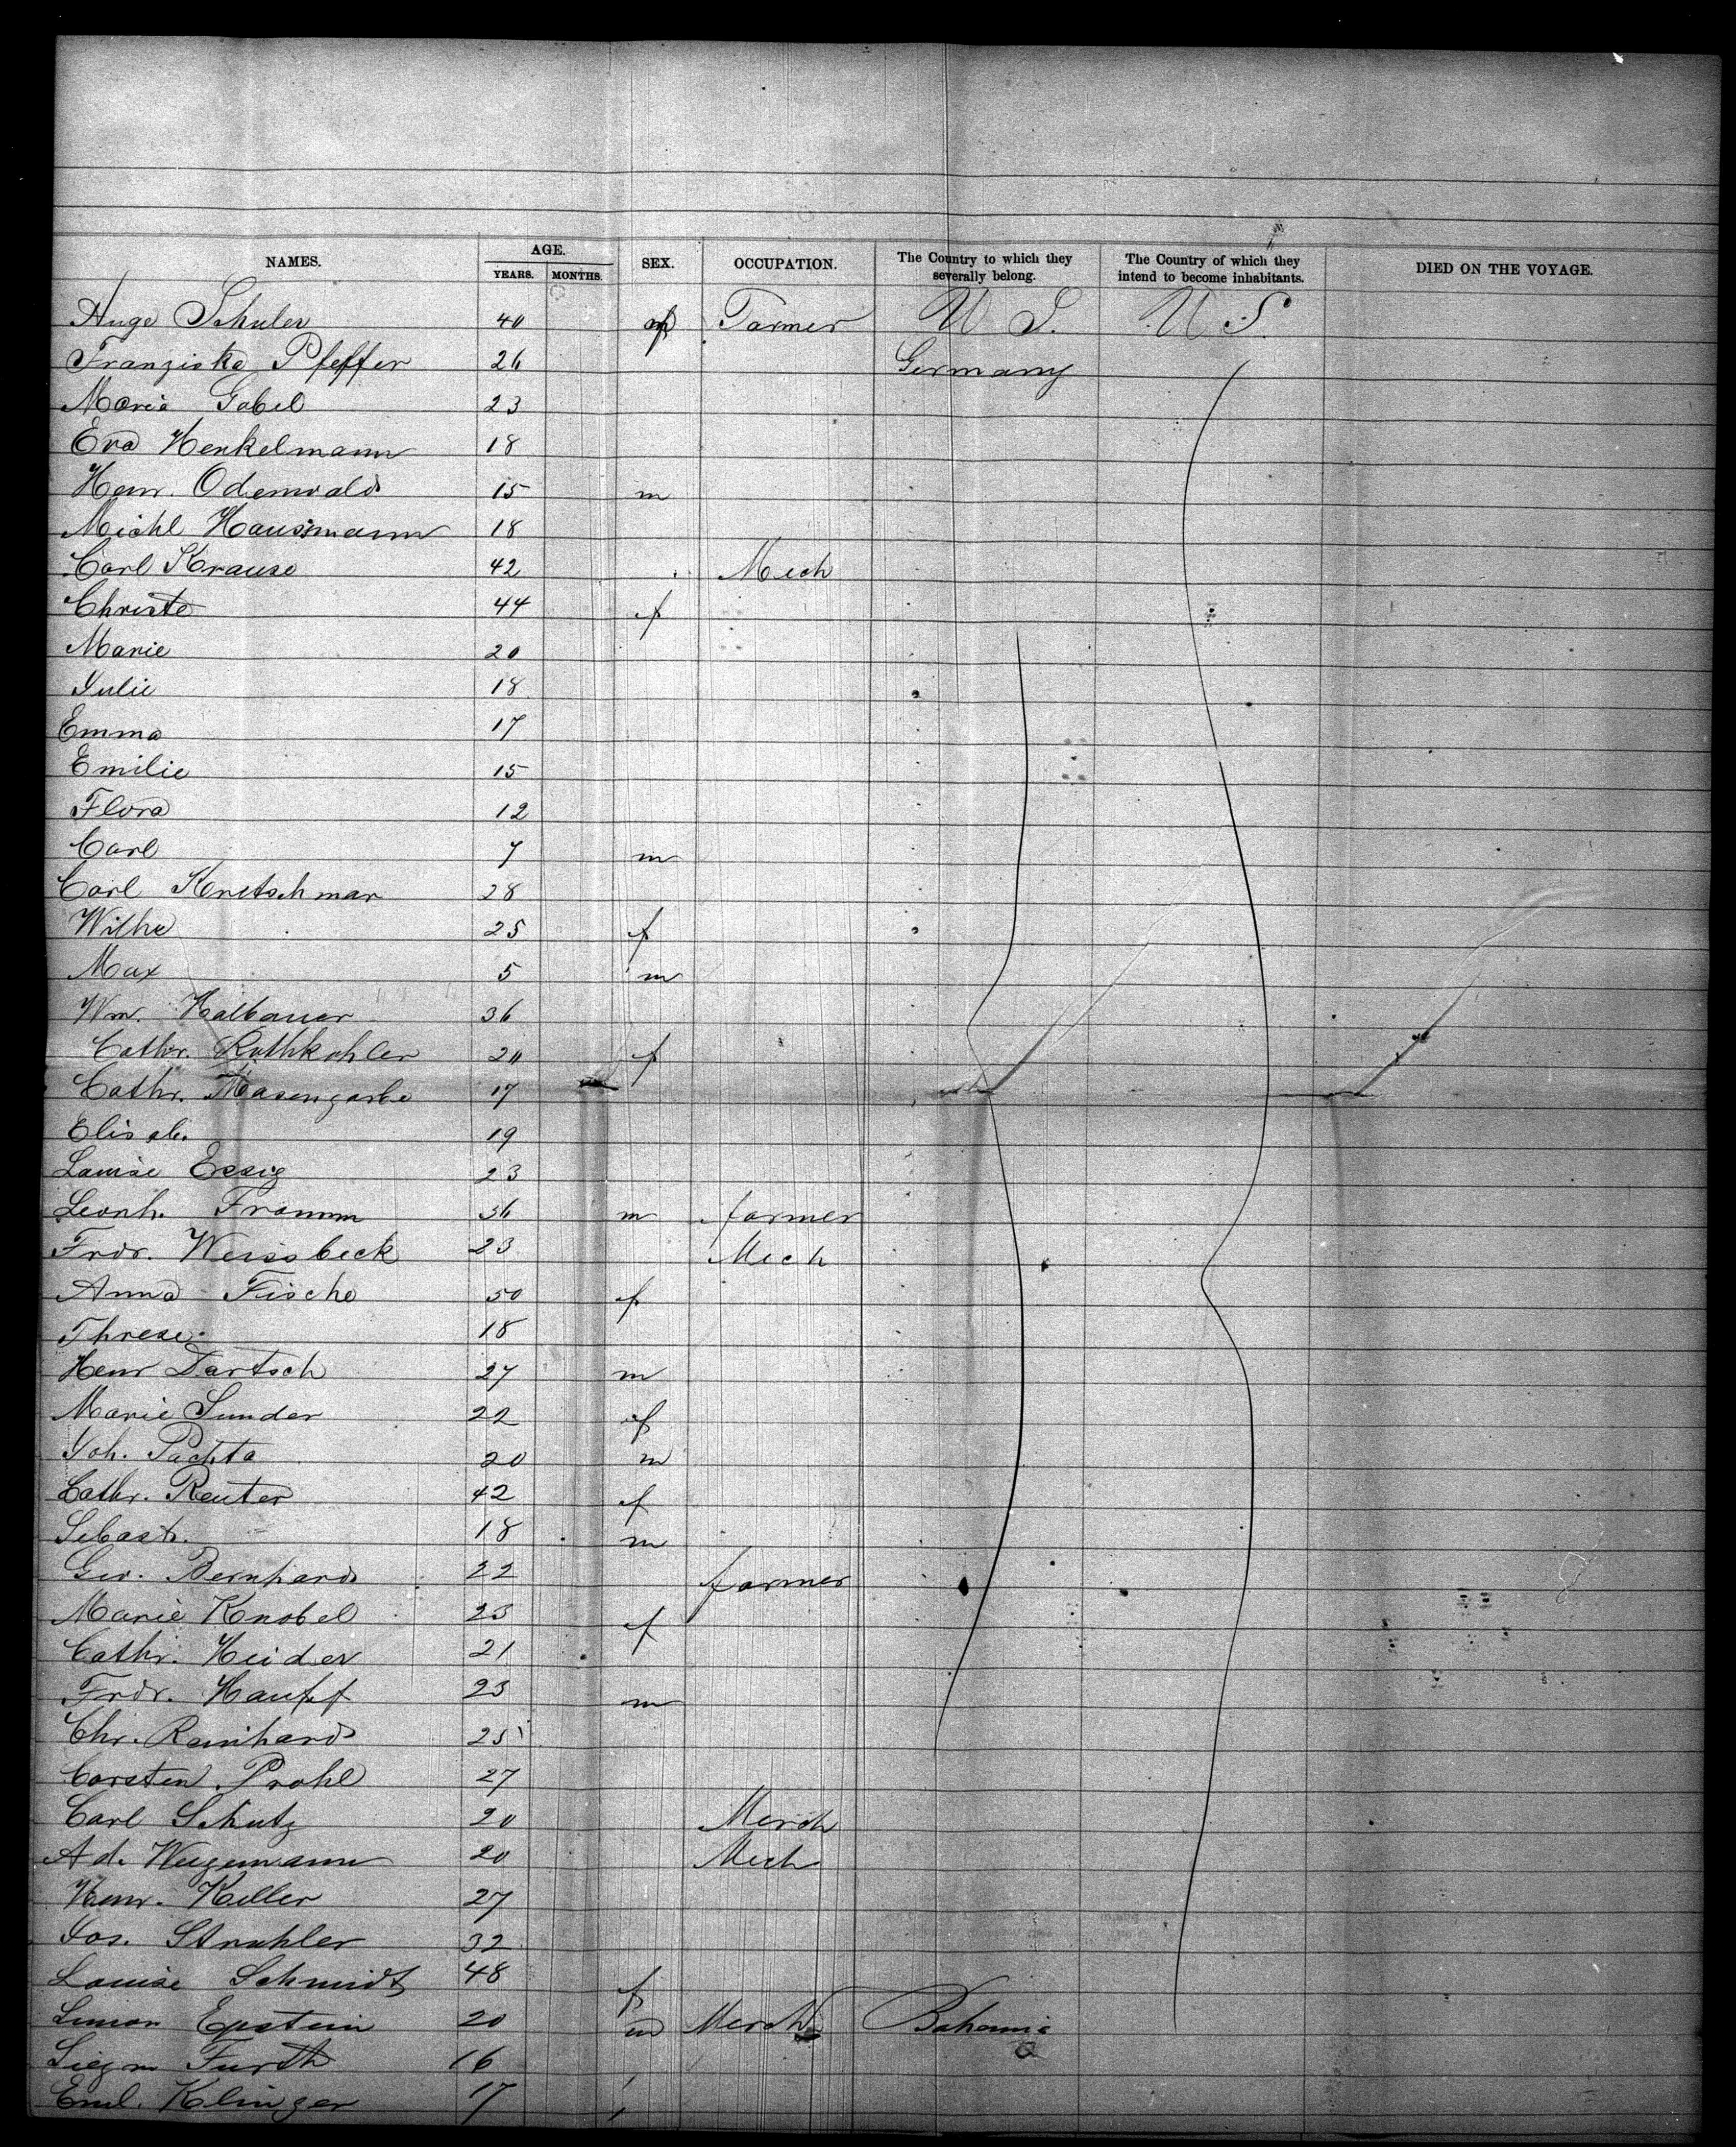 NAMES. AGE. YEARS. MONTHS. SEX. OCCUPATION. The Country to which they severally belong. The Country of which they intend to become inhabitants. DIED ON THE VOYAGE.
Hugo Schuler 40 f Farmer U S. U S
Franziska Pfeffer 26 Germany
Maria Gobel 23
Eva Henkelmann 18
Henr. Odenwald 15 m
Michl Hausmann 18
Carl Krause 42 Mech
Christe 44 f
Marie 20
Julie 18
Emma 17
Emilie 15
Flora 12
Carl 7 m
Carl Kretschmar 28
Wilhe 25 f
Max 5 m
Wm. Halbauer 36
Cathr. Ruthkohler 20 f
Cathr. Hasengarbe 17
Elisab. 19
Louise Essig 23
Leonh. Fromm 36 m farmer
Frdr. Weissbeck 23 Mech
Anna Fische 50 f
Threse 18
Henr Dartsch 27 m
Marie Sunder 22 f
Joh. Pachta 20 m
Cathr. Reuter 42 f
Sebast. 18 m
Geo. Bernhard 22 farmer
Marie Knobel 23 f
Cathr. Heider 21
Frdr. Hauff 23 m
Chr. Reinhard 25
Carsten Prohl 27
Carl Schutz 20 Merch
Ad. Wegemann 20 Mech
Henr. Keller 27
Jos. Struhler 32
Louise Schmidt 48 f
Simon Epstein 20 m Merch Bohemia
Siegm Furth 16
Eml. Klinger 17